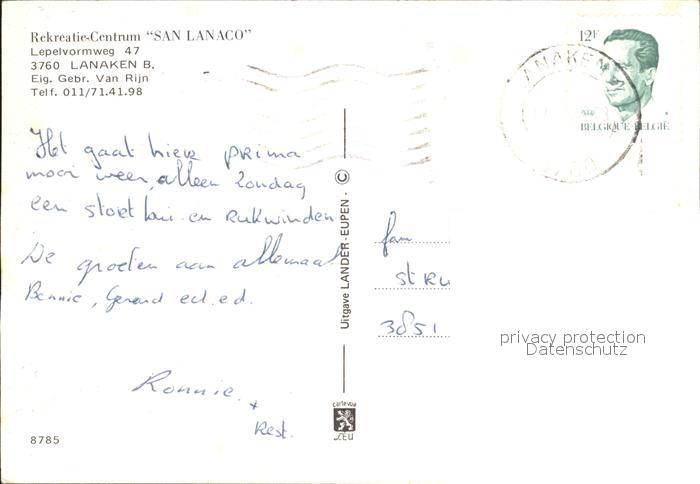 Rekreatie-Centrum “SAN LANACO”
Lepelvormweg 47
3760 LANAKEN B.
Eig. Gebr. Van Rijn
Telf. 011/71.41.98
12F
LANAKEN
BELGIQUE-BELGIË
Het gaat hier prima
mooi weer, alleen Zondag
een stortbui en Rukwinden
De groeten aan allemaal
Bennie, Gerard ect. e.d.
Ronnie.
+
Rest.
Uitgave LANDER-EUPEN - ©
fam
St Ru
3851
privacy protection
Datenschutz
carte vue
LEU
8785